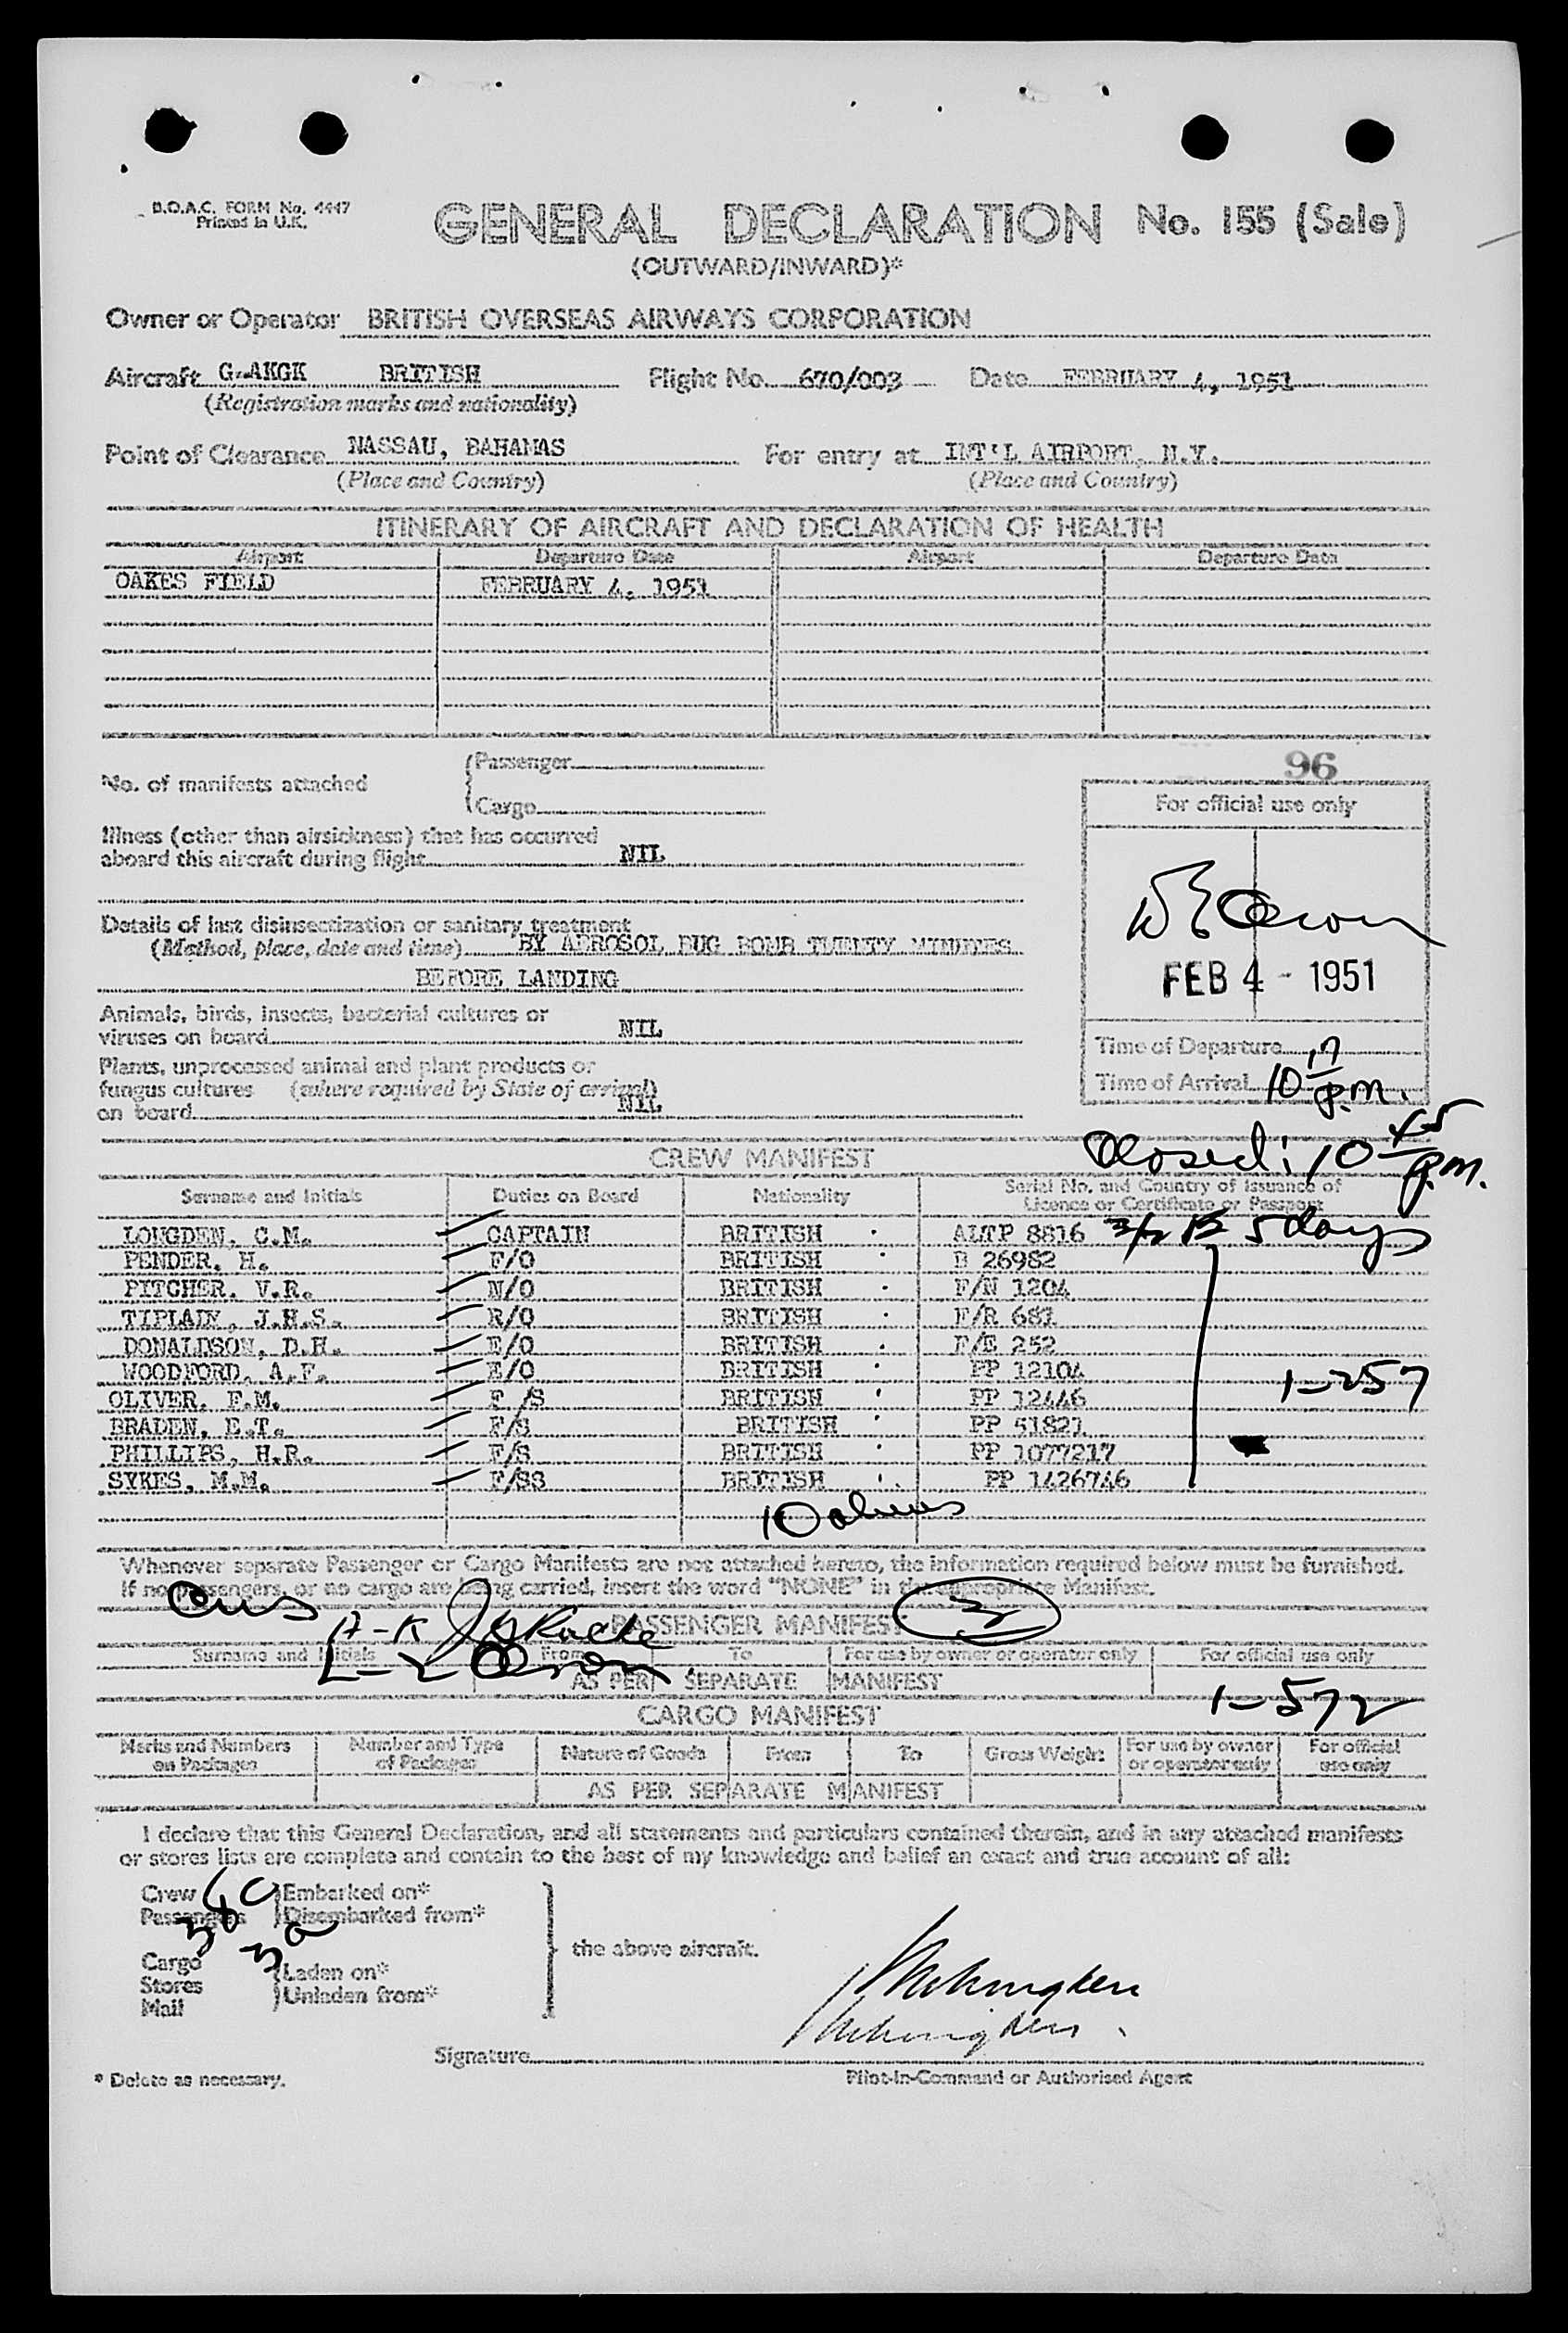 B.O.A.C. FORM No. 4447
Printed in U.K.
GENERAL DECLARATION No. 155 (Sale)
(OUTWARD/INWARD)*
Owner or Operator BRITISH OVERSEAS AIRWAYS CORPORATION
Aircraft G-AKGK BRITISH Flight No. 670/003 Date FEBRUARY 4, 1951
(Registration marks and nationality)
Point of Clearance NASSAU, BAHAMAS For entry at INT'L AIRPORT, N.Y.
(Place and Country) (Place and Country)
ITINERARY OF AIRCRAFT AND DECLARATION OF HEALTH
Airport Departure Date Airport Departure Date
OAKES FIELD FEBRUARY 4, 1951
96
No. of manifests attached
Passenger
Cargo
For official use only
Illness (other than airsickness) that has occurred
aboard this aircraft during flight NIL
Details of last disinsectization or sanitary treatment
(Method, place, date and time) BY AEROSOL BUG BOMB TWENTY MINUTES
BEFORE LANDING
FEB 4 - 1951
Animals, birds, insects, bacterial cultures or
viruses on board NIL
Plants, unprocessed animal and plant products or
fungus cultures (where required by State of arrival)
on board NIL
Time of Departure
Time of Arrival 10 17 p.m.
Closed: 10 45 p.m.
CREW MANIFEST
Surname and Initials Duties on Board Nationality Serial No. and Country of Issuance of
Licence or Certificate or Passport
LONGDEN, C.M. CAPTAIN BRITISH ALTP 8816 5 days
PENDER, H. F/O BRITISH B 26982
PITCHER, V.R. N/O BRITISH F/N 1204
TIPLADY, J.H.S. R/O BRITISH F/R 681
DONALDSON, D.H. E/O BRITISH F/E 252
WOODFORD, A.F. E/O BRITISH PP 12104 1-257
OLIVER, F.M. F/S BRITISH PP 12446
BRADEN, E.T. F/S BRITISH PP 51821
PHILLIPS, H.R. F/S BRITISH PP 1077217
SYKES, M.M. F/SS BRITISH PP 1426746
10 aliens
Whenever separate Passenger or Cargo Manifests are not attached hereto, the information required below must be furnished.
If no passengers, or no cargo are being carried, insert the word "NONE" in the appropriate Manifest.
A-K
PASSENGER MANIFEST
Surname and Initials From To For use by owner or operator only For official use only
L-
AS PER SEPARATE MANIFEST
1-572
CARGO MANIFEST
Marks and Numbers on Packages Number and Type of Packages Nature of Goods From To Gross Weight For use by owner or operator only For official use only
AS PER SEPARATE MANIFEST
I declare that this General Declaration, and all statements and particulars contained therein, and in any attached manifests
or stores lists are complete and contain to the best of my knowledge and belief an exact and true account of all:
Crew Embarked on*
Passengers Disembarked from*
the above aircraft.
Cargo
Stores Laden on*
Mail Unladen from*
Signature
Pilot-in-Command or Authorised Agent
* Delete as necessary.